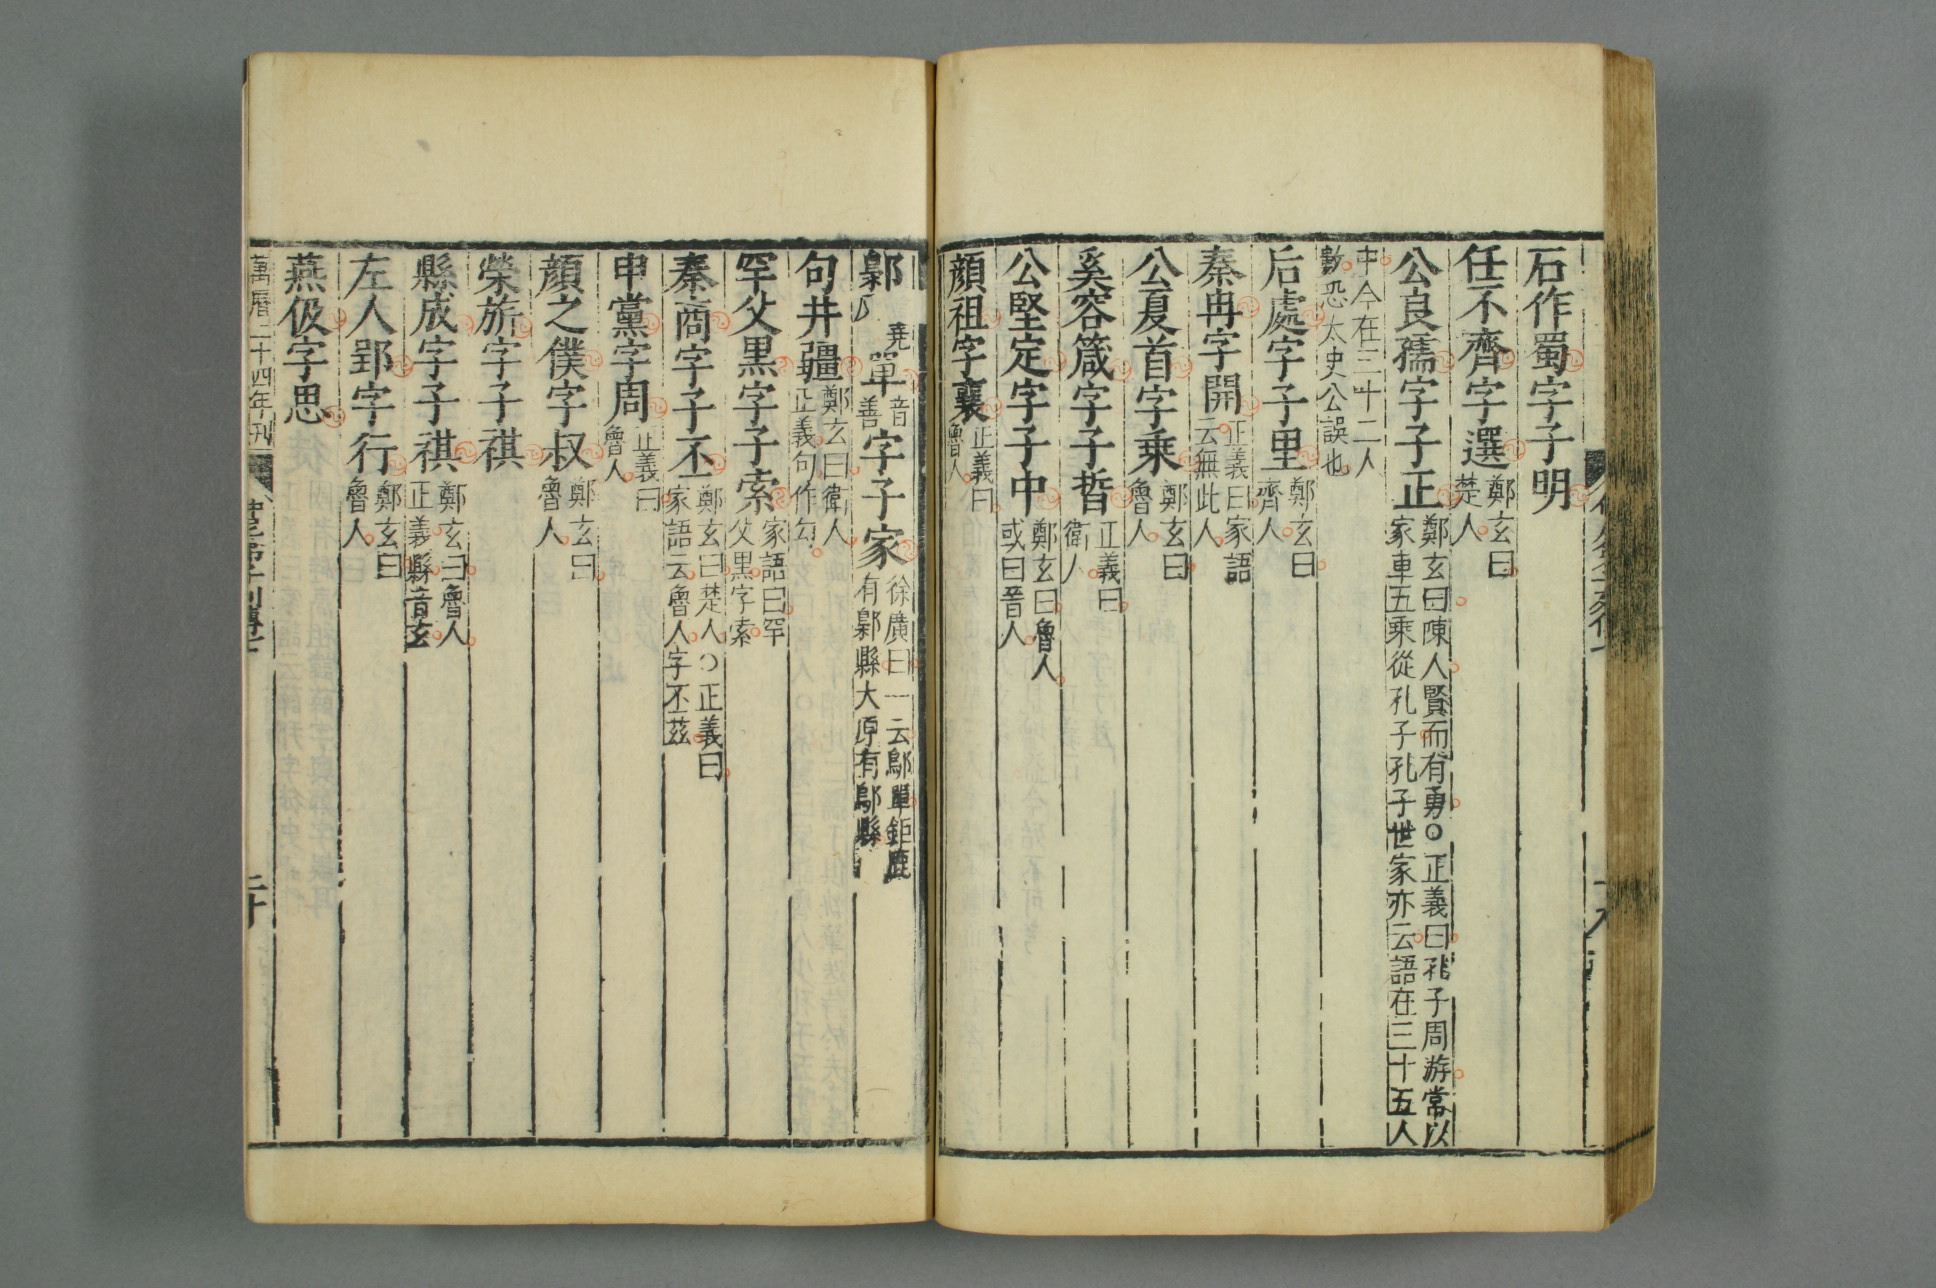 石作蜀字子明
任不齊字選鄭玄曰楚人
公良孺字子正鄭玄曰陳人賢而有勇○正義曰孔子周游常以家車五乘從孔子孔子世家亦云語在三十五人
中今在三十二人數恐太史公誤也
后處字子里鄭玄曰齊人
秦冉字開正義曰家語云無此人
公夏首字乘鄭玄曰魯人
奚容箴字子晳正義曰衛人
公堅定字子中鄭玄曰魯人或曰晉人
顏祖字襄正義曰魯人
鄡單音善字子家徐廣曰一云鄔單鉅鹿有鄡縣大原有鄔縣
句井疆鄭玄曰衛人正義句作勾
罕父黑字子索家語曰罕父黑字索
秦商字子丕鄭玄曰楚人○正義曰家語云魯人字丕茲
申黨字周正義曰魯人
顏之僕字叔鄭玄曰魯人
榮旂字子祺
縣成字子祺鄭玄曰魯人正義縣音玄
左人郢字行鄭玄曰魯人
燕伋字思
萬曆二十四年刊
二十